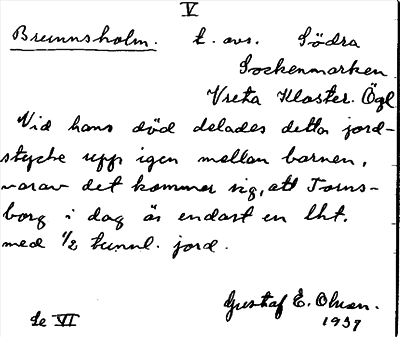 V
Brunnsholm. t. avs. Södra
Sockenmarken
Vreta Kloster. Ögl
Vid hans död delades detta jord-
stycke upp igen mellan barnen,
varav det kommer sig, att Torns-
borg i dag är endast en lht.
med 1/2 tunnl. jord.
Gustaf E. Olsson.
Se VI 1937